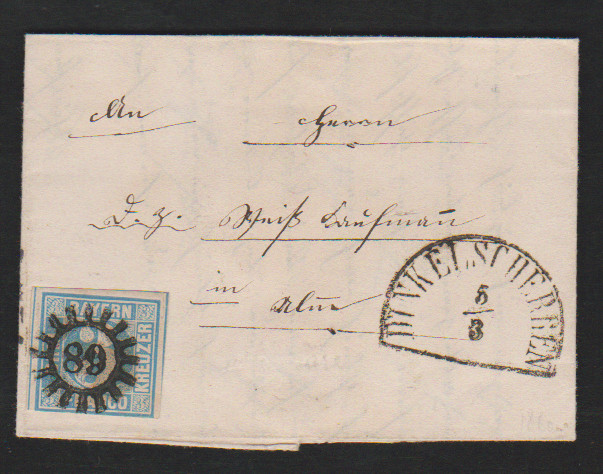 An Herrn
D. z. Weiß Kaufmann
in Ulm
DUNKELSCHERBEN
5
3
BAYERN
KREUZER
89